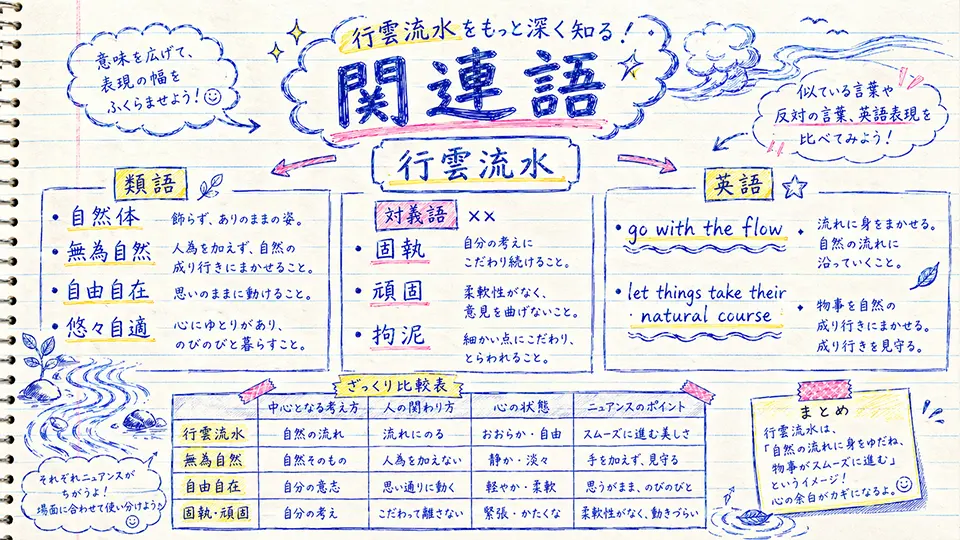 意味を広げて、
表現の幅を
ふくらませよう!
行雲流水をもっと深く知る!
関連語
似ている言葉や
反対の言葉、英語表現を
比べてみよう!
行雲流水
類語
• 自然体 飾らず、ありのままの姿。
• 無為自然 人為を加えず、自然の
成り行きにまかせること。
• 自由自在 思いのままに動けること。
• 悠々自適 心にゆとりがあり、
のびのびと暮らすこと。
対義語 ××
• 固執 自分の考えに
こだわり続けること。
• 頑固 柔軟性がなく、
意見を曲げないこと。
• 拘泥 細かい点にこだわり、
とらわれること。
英語
• go with the flow 流れに身をまかせる。
自然の流れに
沿っていくこと。
• let things take their
natural course
物事を自然の
成り行きにまかせる。
成り行きを見守る。
それぞれニュアンスが
ちがうよ!
場面に合わせて使い分けよう
ざっくり比較表
中心となる考え方 人の関わり方 心の状態 ニュアンスのポイント
行雲流水 自然の流れ 流れにのる おおらか・自由 スムーズに進む美しさ
無為自然 自然そのもの 人為を加えない 静か・淡々 手を加えず、見守る
自由自在 自分の意志 思い通りに動く 軽やか・柔軟 思うがまま、のびのびと
固執・頑固 自分の考え こだわって離さない 緊張・かたくな 柔軟性がなく、動きづらい
まとめ
行雲流水は、
「自然の流れに身をゆだね、
物事がスムーズに進む」
というイメージ!
心の余白がカギになるよ。